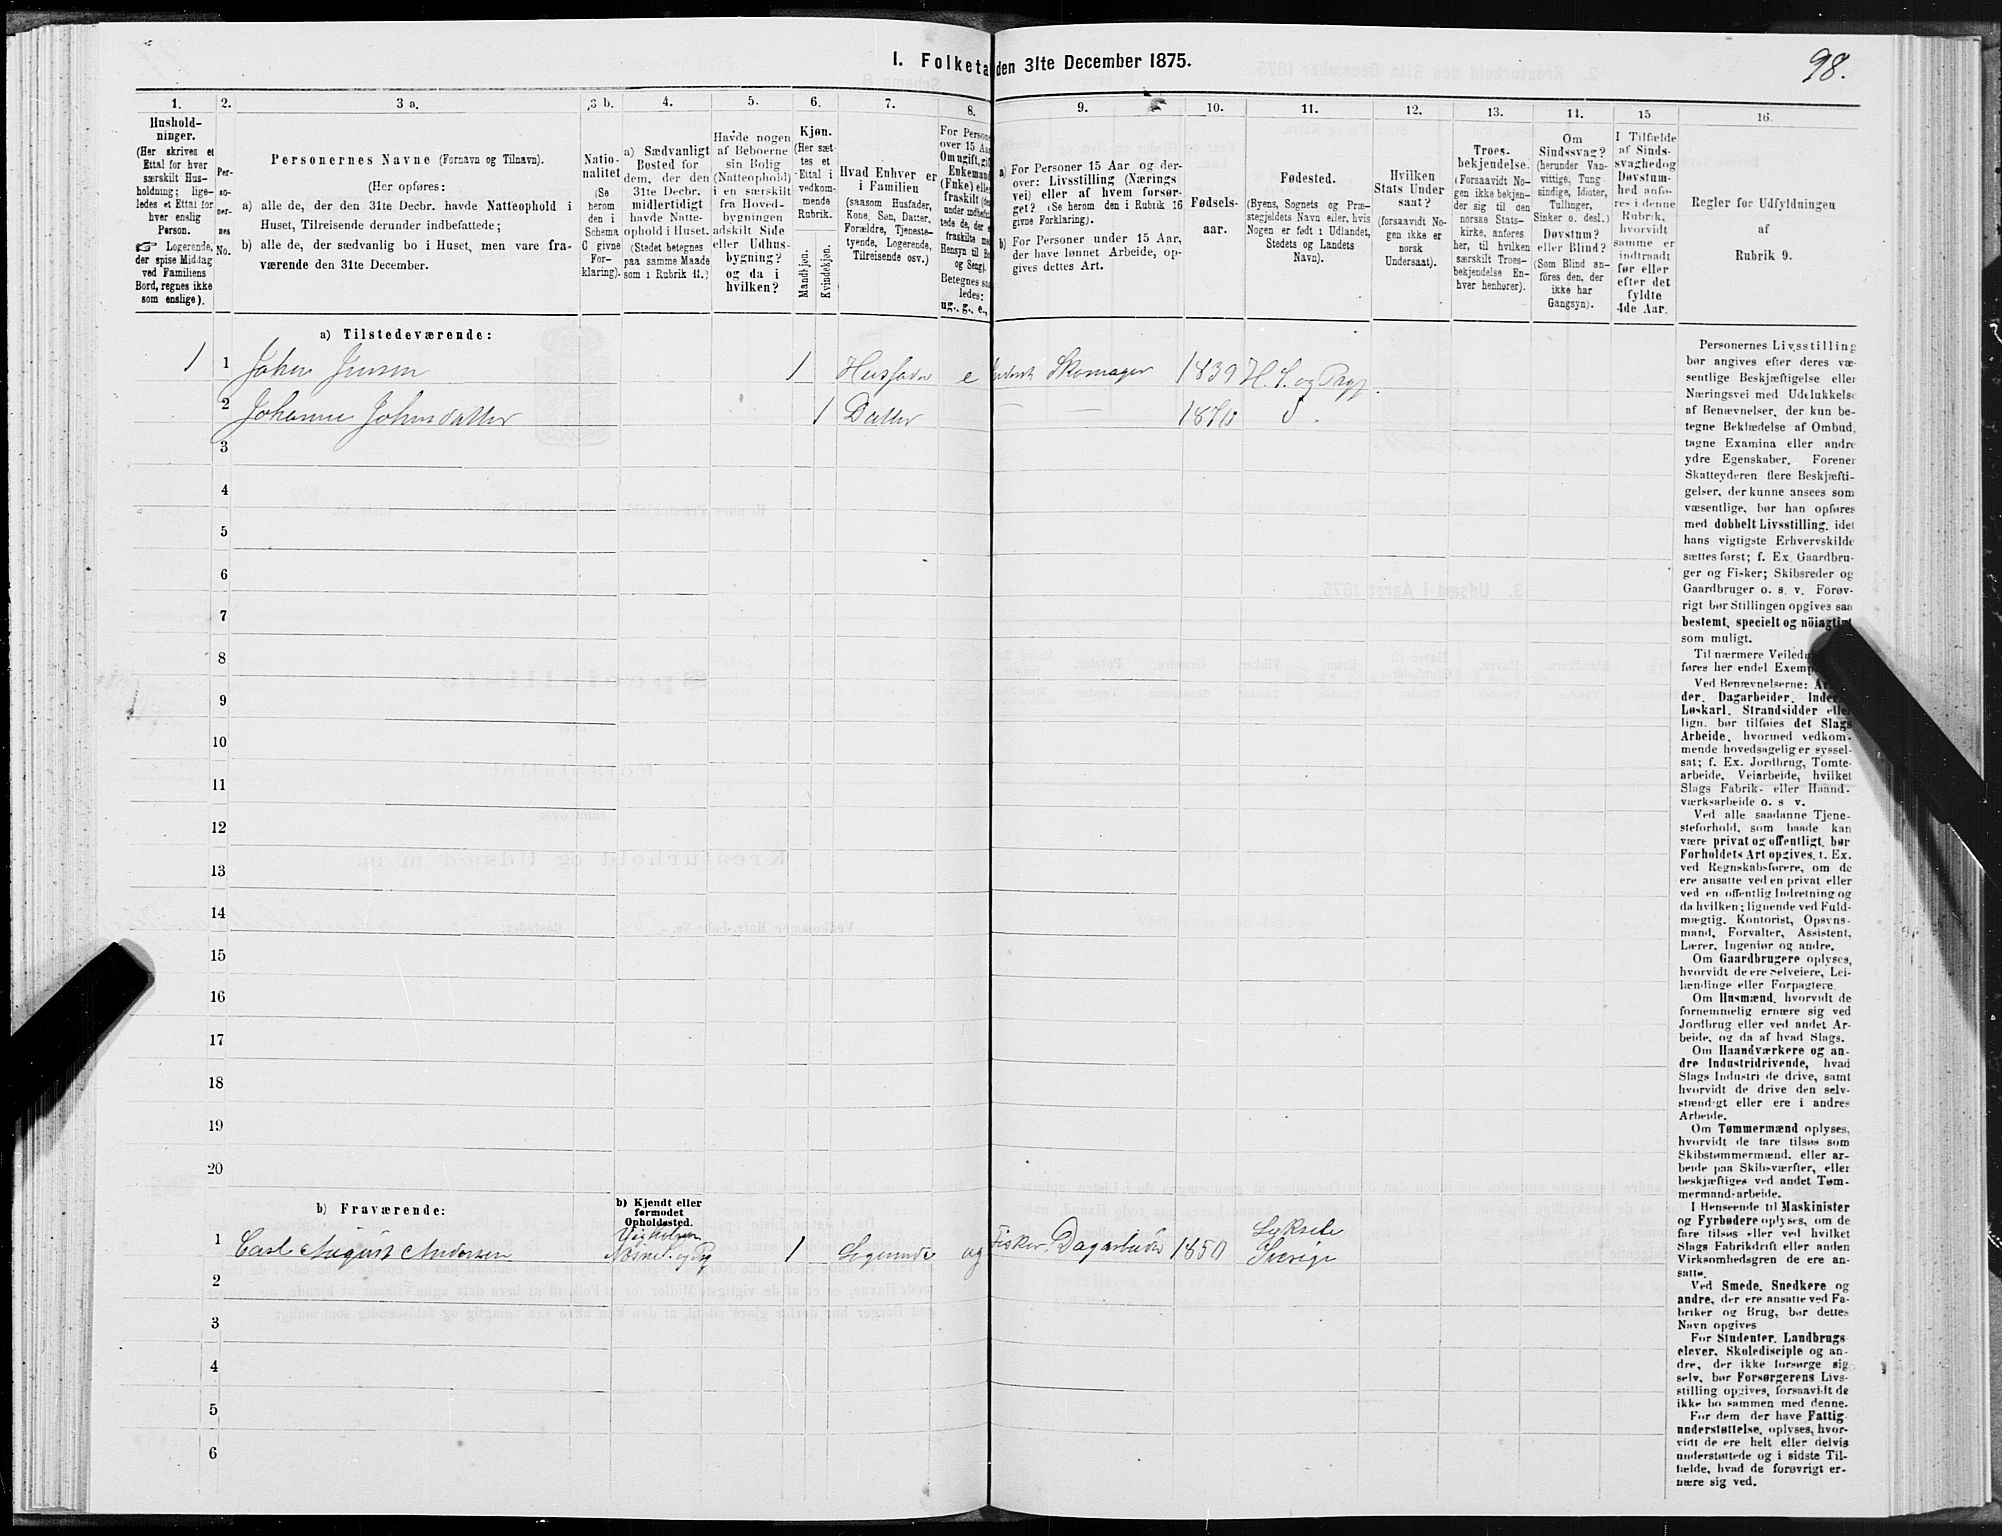 98.
I. Folketa den 31te December 1875.
1. 2. 3 a. 3 b. 4. 5. 6. 7. 8. 9. 10. 11. 12. 13. 14. 15 16.
Hushold-
ninger.
(Her skrives et
Ettal for hver
særskilt Hus-
holdning; lige-
ledes et Ettal for
hver enslig
Person.
☞ Logerende,
der spise Middag
ved Familiens
Bord, regnes ikke
som enslige).
Per-
so-
ner-
nes
No.
Personernes Navne (Fornavn og Tilnavn).
(Her opføres:
a) alle de, der den 31te Decbr. havde Natteophold i
Huset, Tilreisende derunder indbefattede;
b) alle de, der sædvanlig bo i Huset, men vare fra-
værende den 31te December.
Natio-
nalitet
(Se
herom
den i
Schema
C givne
For-
klaring).
a) Sædvanligt
Bosted for
dem, der den
31te Decbr.
midlertidigt
havde Natte-
ophold i Huset.
(Stedet betegnes
paa samme Maade
som i Rubrik 11.)
Havde nogen
af Beboerne
sin Bolig
(Natteophold)
i en særskilt
fra Hoved-
bygningen
adskilt Side
eller Udhus-
bygning?
og da i
hvilken?
Kjøn.
(Her sæt-
tes et
Ettal i
vedkom-
mende
Rubrik.
Mandkjøn.
Kvindekjøn.
Hvad Enhver er
i Familien
(saasom Husfader,
Kone, Søn, Datter,
Forældre, Tjeneste-
tyende, Logerende,
Tilreisende osv.)
For Persone
over 15 Aar
Om ugift, gift
Enkemand
(Enke) eller
fraskilt (de
under indbefat-
tede de, der e
fraskilte me
Hensyn til Bo
og Seng).
Betegnes saa
ledes:
ug., g., e.,
a) For Personer 15 Aar og der-
over: Livsstilling (Nærings
vei) eller af hvem forsør-
get? (Se herom den i Rubrik 16
givne Forklaring).
b) For Personer under 15 Aar,
der have lønnet Arbeide, op-
gives dettes Art.
Fødsels-
aar.
Fødested.
(Byens, Sognets og Præ-
stegjeldets Navn eller, hvis
Nogen er født i Udlandet,
Stedets og Landets
Navn).
Hvilken
Stats Under
saat?
(forsaavidt No-
gen ikke er
norsk
Undersaat).
Troes-
bekjendelse.
(Forsaavidt No-
gen ikke bekjen-
der sig til den
norske Stats-
kirke, anføres
her, til hvilken
særskilt Troes-
bekjendelse En-
hver henhører).
Om
Sindssvag?
(herunder Van-
vittige, Tung
sindige, Idioter,
Tullinger,
Sinker o. desl.)
Døvstum?
eller Blind?
(Som Blind an-
föres den, der
ikke har
Gangsyn).
I Tilfælde
af Sinds-
svaghed og
Døvstum-
hed anfø-
res i denne
Rubrik,
hvorvidt
samme er
indtraadt
før eller
efter det
fyldte
4de Aar.
Regler for Udfyldningen
af
Rubrik 9.
a) Tilstedeværende:
1 1 John Jensen 1 Husfader e Inderst Skomager 1839 H. S. og Prgj.
2 Johanne Johnsdatter 1 Datter — — 1870 S.
3
4
5
6
7
8
9
10
11
12
13
14
15
16
17
18
19
20
b) Fraværende:
b) Kjendt eller
formodet
Opholdssted.
1 Carl August Andersen 1 Logerende ug Fisker. Dagarbeider 1850 Sverige
2
3
4
5
6
Personernes Livsstilling
bør angives efter deres væ-
sentlige Beskjæftigelse eller
Næringsvei med Udelukkelse
af Benævnelser, der kun be-
tegne Beklædelse af Ombud,
tagne Examina eller andre
ydre Egenskaber. Forener
Skatteyderen flere Beskjæfti-
gelser, der kunne ansees som
væsentlige, bør han opføres
med dobbelt Livsstilling, idet
hans vigtigste Erhvervskilde
sættes først; f. Ex. Gaardbru-
ger og Fisker; Skibsreder og
Gaardbruger o. s. v. Forøv-
rigt bør Stillingen opgives saa
bestemt, specielt og nöiagtigt
som muligt.
Til nærmere Veiledn
føres her endel Exemp
Ved Benævnelserne: Ar
der, Dagarbeider, Inder
Løskarl, Strandsidder eller
lign. bør tilføies det Slags
Arbeide, hvormed vedkom-
mende hovedsagelig er syssel-
sat; f. Ex. Jordbrug, Tomte-
arbeide, Veiarbeide, hvilket
Slags Fabrik- eller Haand-
værksarbeide o. s v.
Ved alle saadanne Tjene-
steforhold, som baade kan
være privat og offentligt, bør
Forholdets Art opgives, f. Ex.
ved Regnskabsførere, om de
ere ansatte ved en privat eller
ved en offentlig Indretning og
da hvilken; lignende ved Fuld-
mægtig, Kontorist, Opsyns-
mand, Forvalter, Assistent,
Lærer, Ingeniør og andre.
Om Gaardbrugere oplyses,
hvorvidt de ere Selveiere, Lei-
lændinge eller Forpagtere.
Om Husmænd, hvorvidt de
fornemmelig ernære sig ved
Jordbrug eller ved andet Ar-
beide, og da af hvad Slags.
Om Haandværkere og an-
dre Industridrivende, hvad
Slags Industri de drive, samt
hvorvidt de drive den selv-
stændigt eller ere i andres
Arbeide.
Om Tømmermænd oplyses,
hvorvidt de fare tilsøs som
Skibstømmermænd, eller ar-
beide paa Skibsværfter, eller
beskjæftiges ved andet Tøm-
mermand-arbeide.
I Henseende til Maskinister
og Fyrbødere oplyses, om de
fare tilsøs eller ved hvilket
Slags Fabrikdrift eller anden
Virksomhedsgren de ere an-
satte.
Ved Smede, Snedkere og
andre, der ere ansatte ved Fa-
briker og Brug, bør dettes
Navn opgives
For Studenter, Landbrugs
elever, Skoledisciple og an-
dre, der ikke forsørge sig
selv, bør Forsørgerens Livs-
stilling opgives, forsaavidt de
ikke bo sammen med denne.
For dem der have Fattig
understøttelse, oplyses, hvor-
vidt de ere helt eller delvis
understøttede og i sidste Til-
fælde, hvad de forøvrigt er-
nære sig ved.